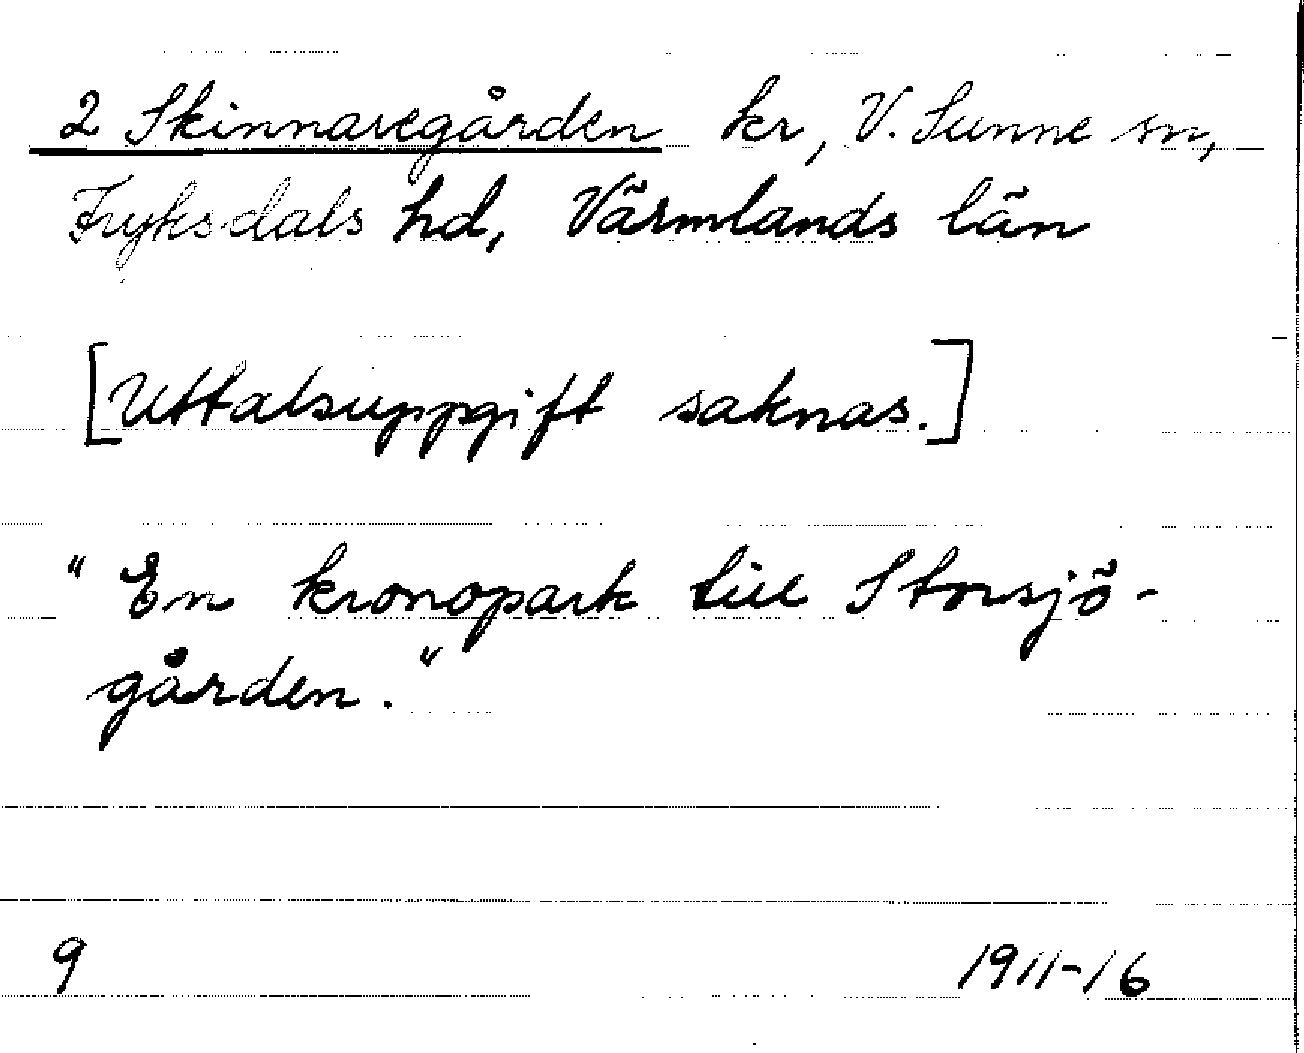 2 Skinnaregården kr, V. Sunne sn,
Fryksdals hd, Värmlands län
[Uttalsuppgift saknas.]
"En kronopark till Storsjö-
gården."
9 1911-16